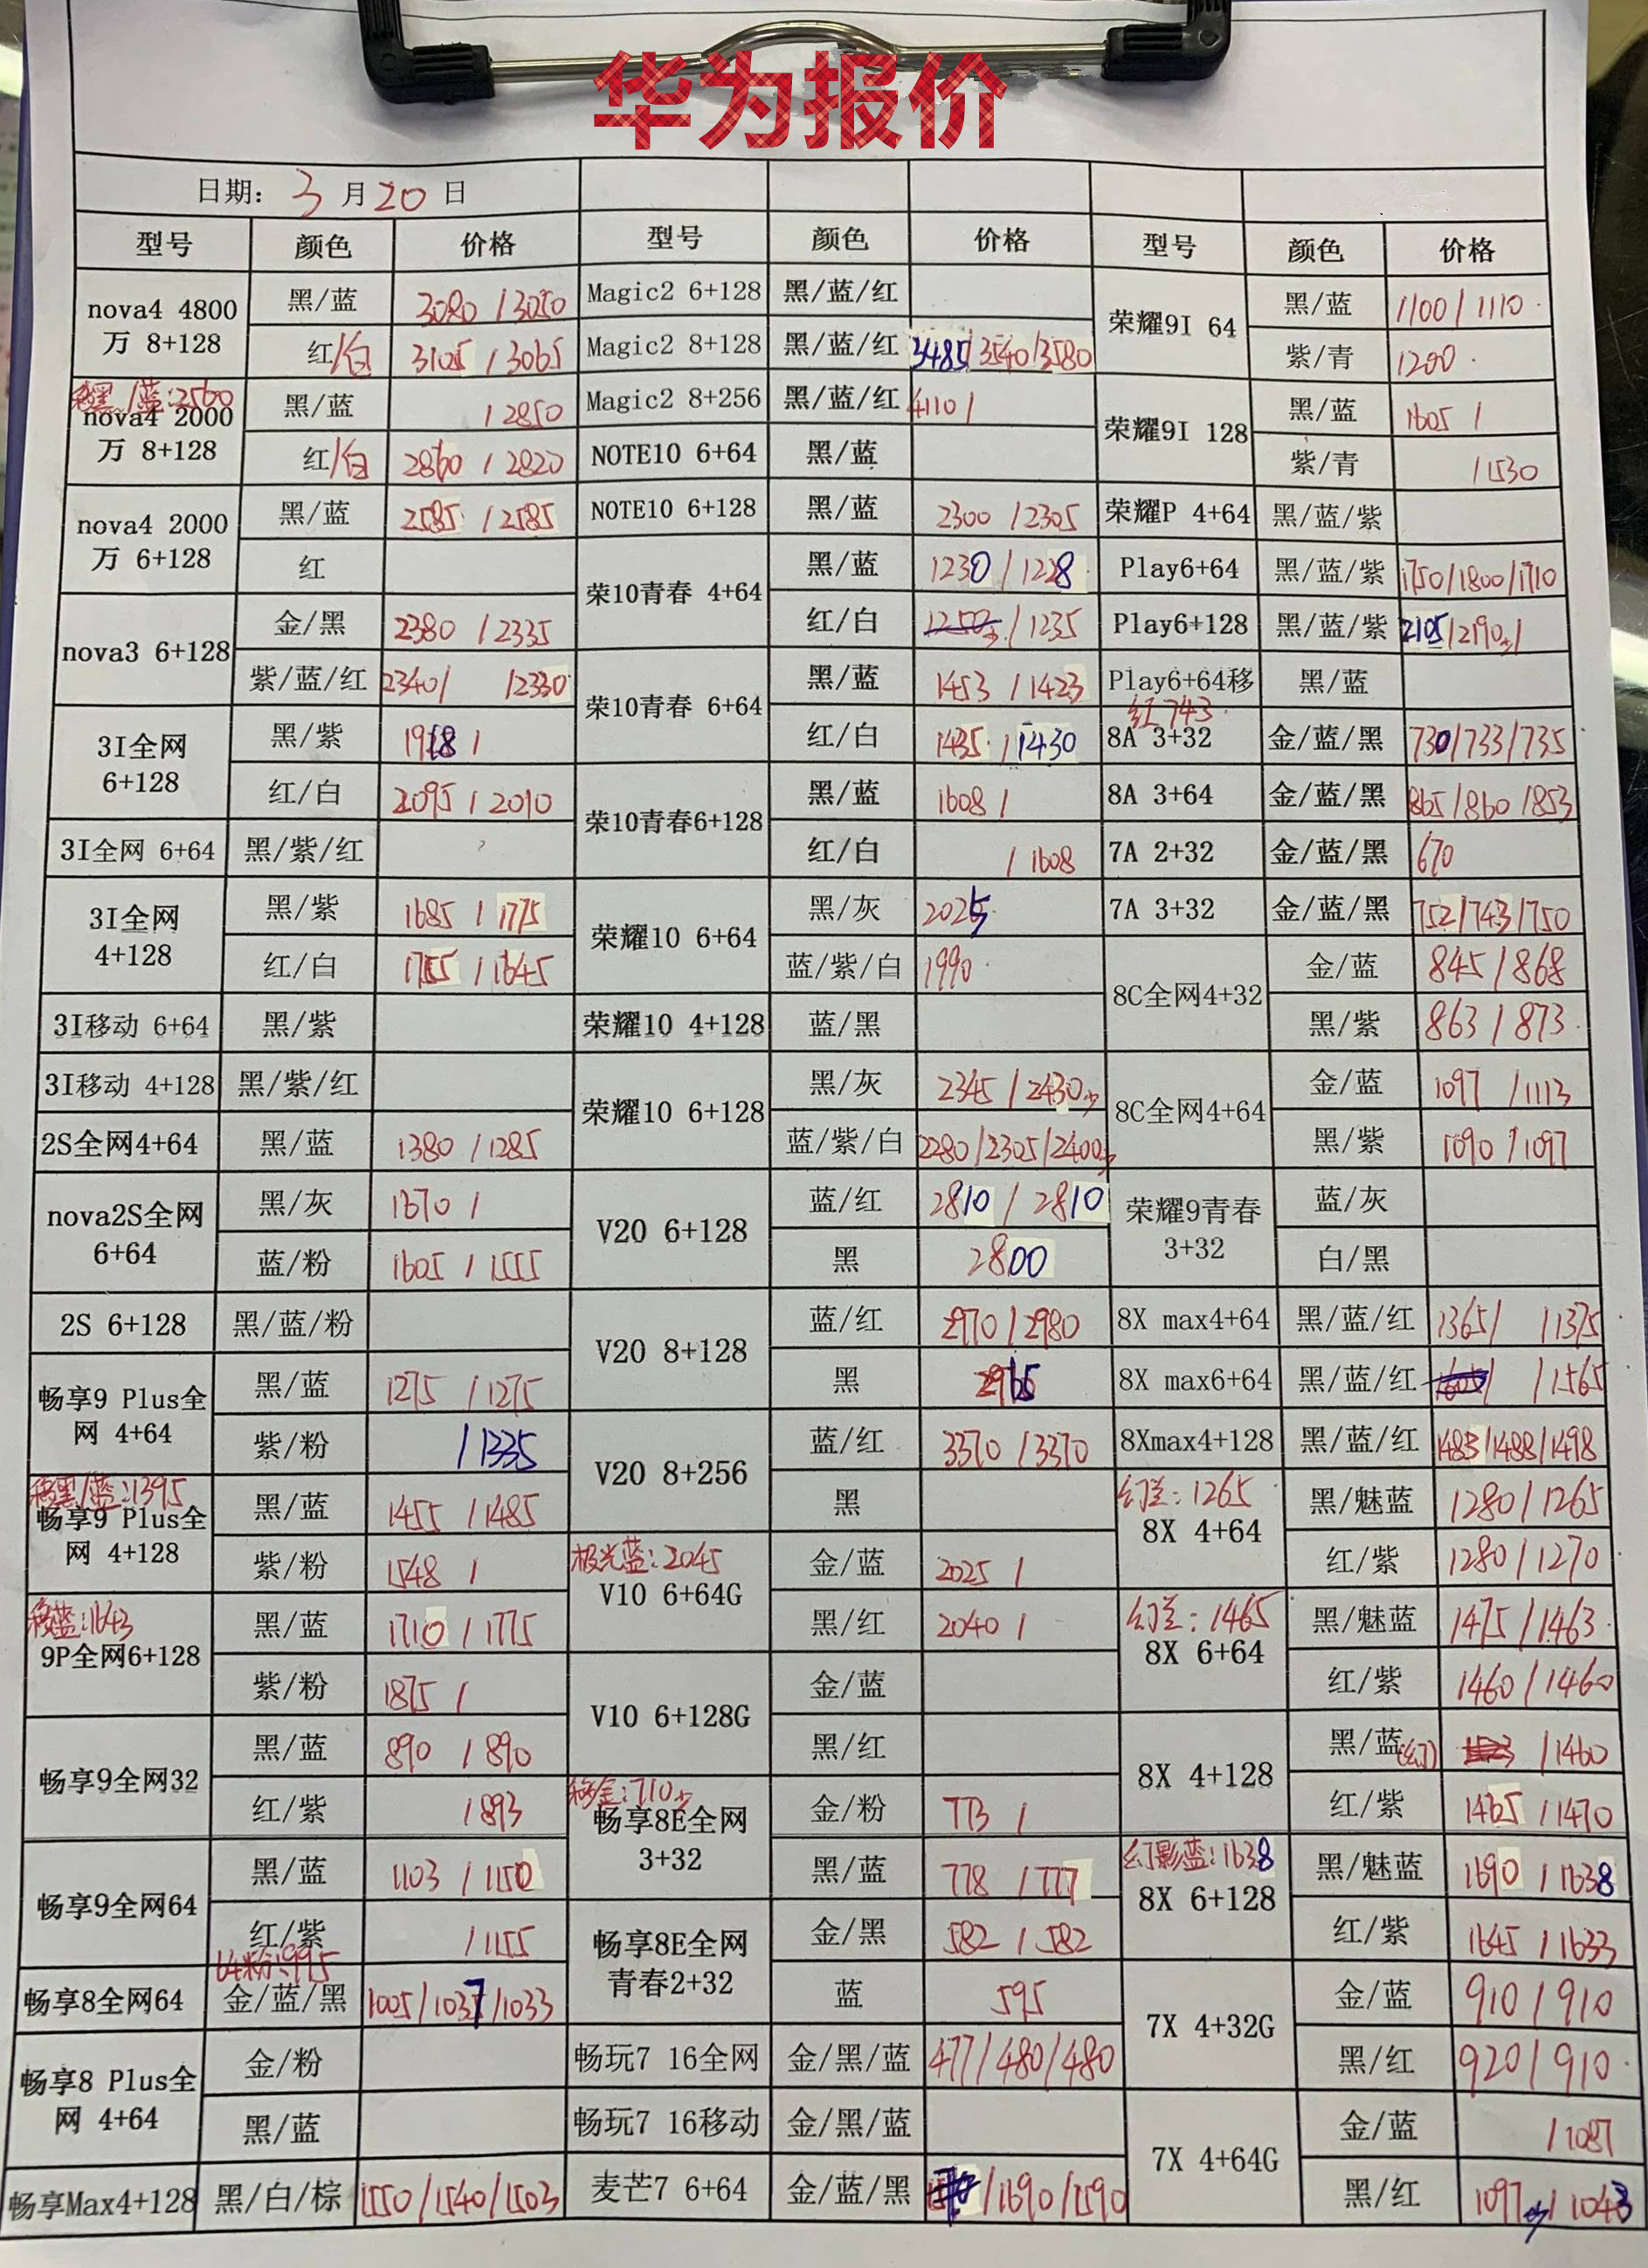 华为报价
日期: 3 月 20 日
型号 颜色 价格 型号 颜色 价格 型号 颜色 价格
nova4 4800万 8+128 黑/蓝 3080 / 3050
红/白 3105 / 3065
移黑/蓝:2560
nova4 2000万 8+128 黑/蓝 / 2850
红/白 2860 / 2820
nova4 2000万 6+128 黑/蓝 2585 / 2585
红
nova3 6+128 金/黑 2380 / 2335
紫/蓝/红 2340/ /2330
3I全网 6+128 黑/紫 1918 /
红/白 2095 / 2010
3I全网 6+64 黑/紫/红
3I全网 4+128 黑/紫 1685 / 1775
红/白 1755 / 1645
3I移动 6+64 黑/紫
3I移动 4+128 黑/紫/红
2S全网4+64 黑/蓝 1380 / 1285
nova2S全网 6+64 黑/灰 1670 /
蓝/粉 1605 / 1555
2S 6+128 黑/蓝/粉
畅享9 Plus全网 4+64 黑/蓝 1275 / 1275
紫/粉 / 1335
移黑/蓝:1395
畅享9 Plus全网 4+128 黑/蓝 1455 / 1485
紫/粉 1548 /
移蓝:1643
9P全网6+128 黑/蓝 1710 / 1775
紫/粉 1875 /
畅享9全网32 黑/蓝 890 / 890
红/紫 / 893
畅享9全网64 黑/蓝 1103 / 1150
红/紫 / 1155
64粉:995
畅享8全网64 金/蓝/黑 1005/1037/1033
畅享8 Plus全网 4+64 金/粉
黑/蓝
畅享Max4+128 黑/白/棕 1550/1540/1503
Magic2 6+128 黑/蓝/红
Magic2 8+128 黑/蓝/红 3485/3540/3580
Magic2 8+256 黑/蓝/红 4110 /
NOTE10 6+64 黑/蓝
NOTE10 6+128 黑/蓝 2300 / 2305
荣10青春 4+64 黑/蓝 1230 / 1228
红/白 1250少 / 1235
荣10青春 6+64 黑/蓝 1453 / 1423
红/白 1435 / 1430
荣10青春6+128 黑/蓝 1608 /
红/白 / 1608
荣耀10 6+64 黑/灰 2025
蓝/紫/白 1990
荣耀10 4+128 蓝/黑
荣耀10 6+128 黑/灰 2345 / 2430少
蓝/紫/白 2280/2305/2400少
V20 6+128 蓝/红 2810 / 2810
黑 2800
V20 8+128 蓝/红 2970 / 2980
黑 2965
V20 8+256 蓝/红 3370 / 3370
黑
极光蓝:2045
V10 6+64G 金/蓝 2025 /
黑/红 2040 /
V10 6+128G 金/蓝
黑/红
移金:710少
畅享8E全网 3+32 金/粉 773 /
黑/蓝 778 / 777
畅享8E全网青春2+32 金/黑 582 / 582
蓝 595
畅玩7 16全网 金/黑/蓝 477/480/480
畅玩7 16移动 金/黑/蓝
麦芒7 6+64 金/蓝/黑 /1690/1590
荣耀9I 64 黑/蓝 1100 / 1110
紫/青 1200
荣耀9I 128 黑/蓝 1605 /
紫/青 / 1530
荣耀P 4+64 黑/蓝/紫
Play6+64 黑/蓝/紫 1750/1800/1710
Play6+128 黑/蓝/紫 2105/2190少/
Play6+64移 黑/蓝
红743
8A 3+32 金/蓝/黑 730/733/735
8A 3+64 金/蓝/黑 865/860/853
7A 2+32 金/蓝/黑 670
7A 3+32 金/蓝/黑 752/743/750
8C全网4+32 金/蓝 845 / 868
黑/紫 863 / 873
8C全网4+64 金/蓝 1097 / 1113
黑/紫 1090 / 1097
荣耀9青春 3+32 蓝/灰
白/黑
8X max4+64 黑/蓝/红 1365/ /1375
8X max6+64 黑/蓝/红 / /1565
8Xmax4+128 黑/蓝/红 1483/1488/1498
幻兰: 1265
8X 4+64 黑/魅蓝 1280 / 1265
红/紫 1280 / 1270
幻兰: 1465
8X 6+64 黑/魅蓝 1475 / 1463
红/紫 1460 / 1460
8X 4+128 黑/蓝(幻) / 1460
红/紫 1465 / 1470
幻影蓝:1638
8X 6+128 黑/魅蓝 1690 / 1638
红/紫 1645 / 1633
7X 4+32G 金/蓝 910 / 910
黑/红 920 / 910
7X 4+64G 金/蓝 / 1087
黑/红 1097少/ 1043